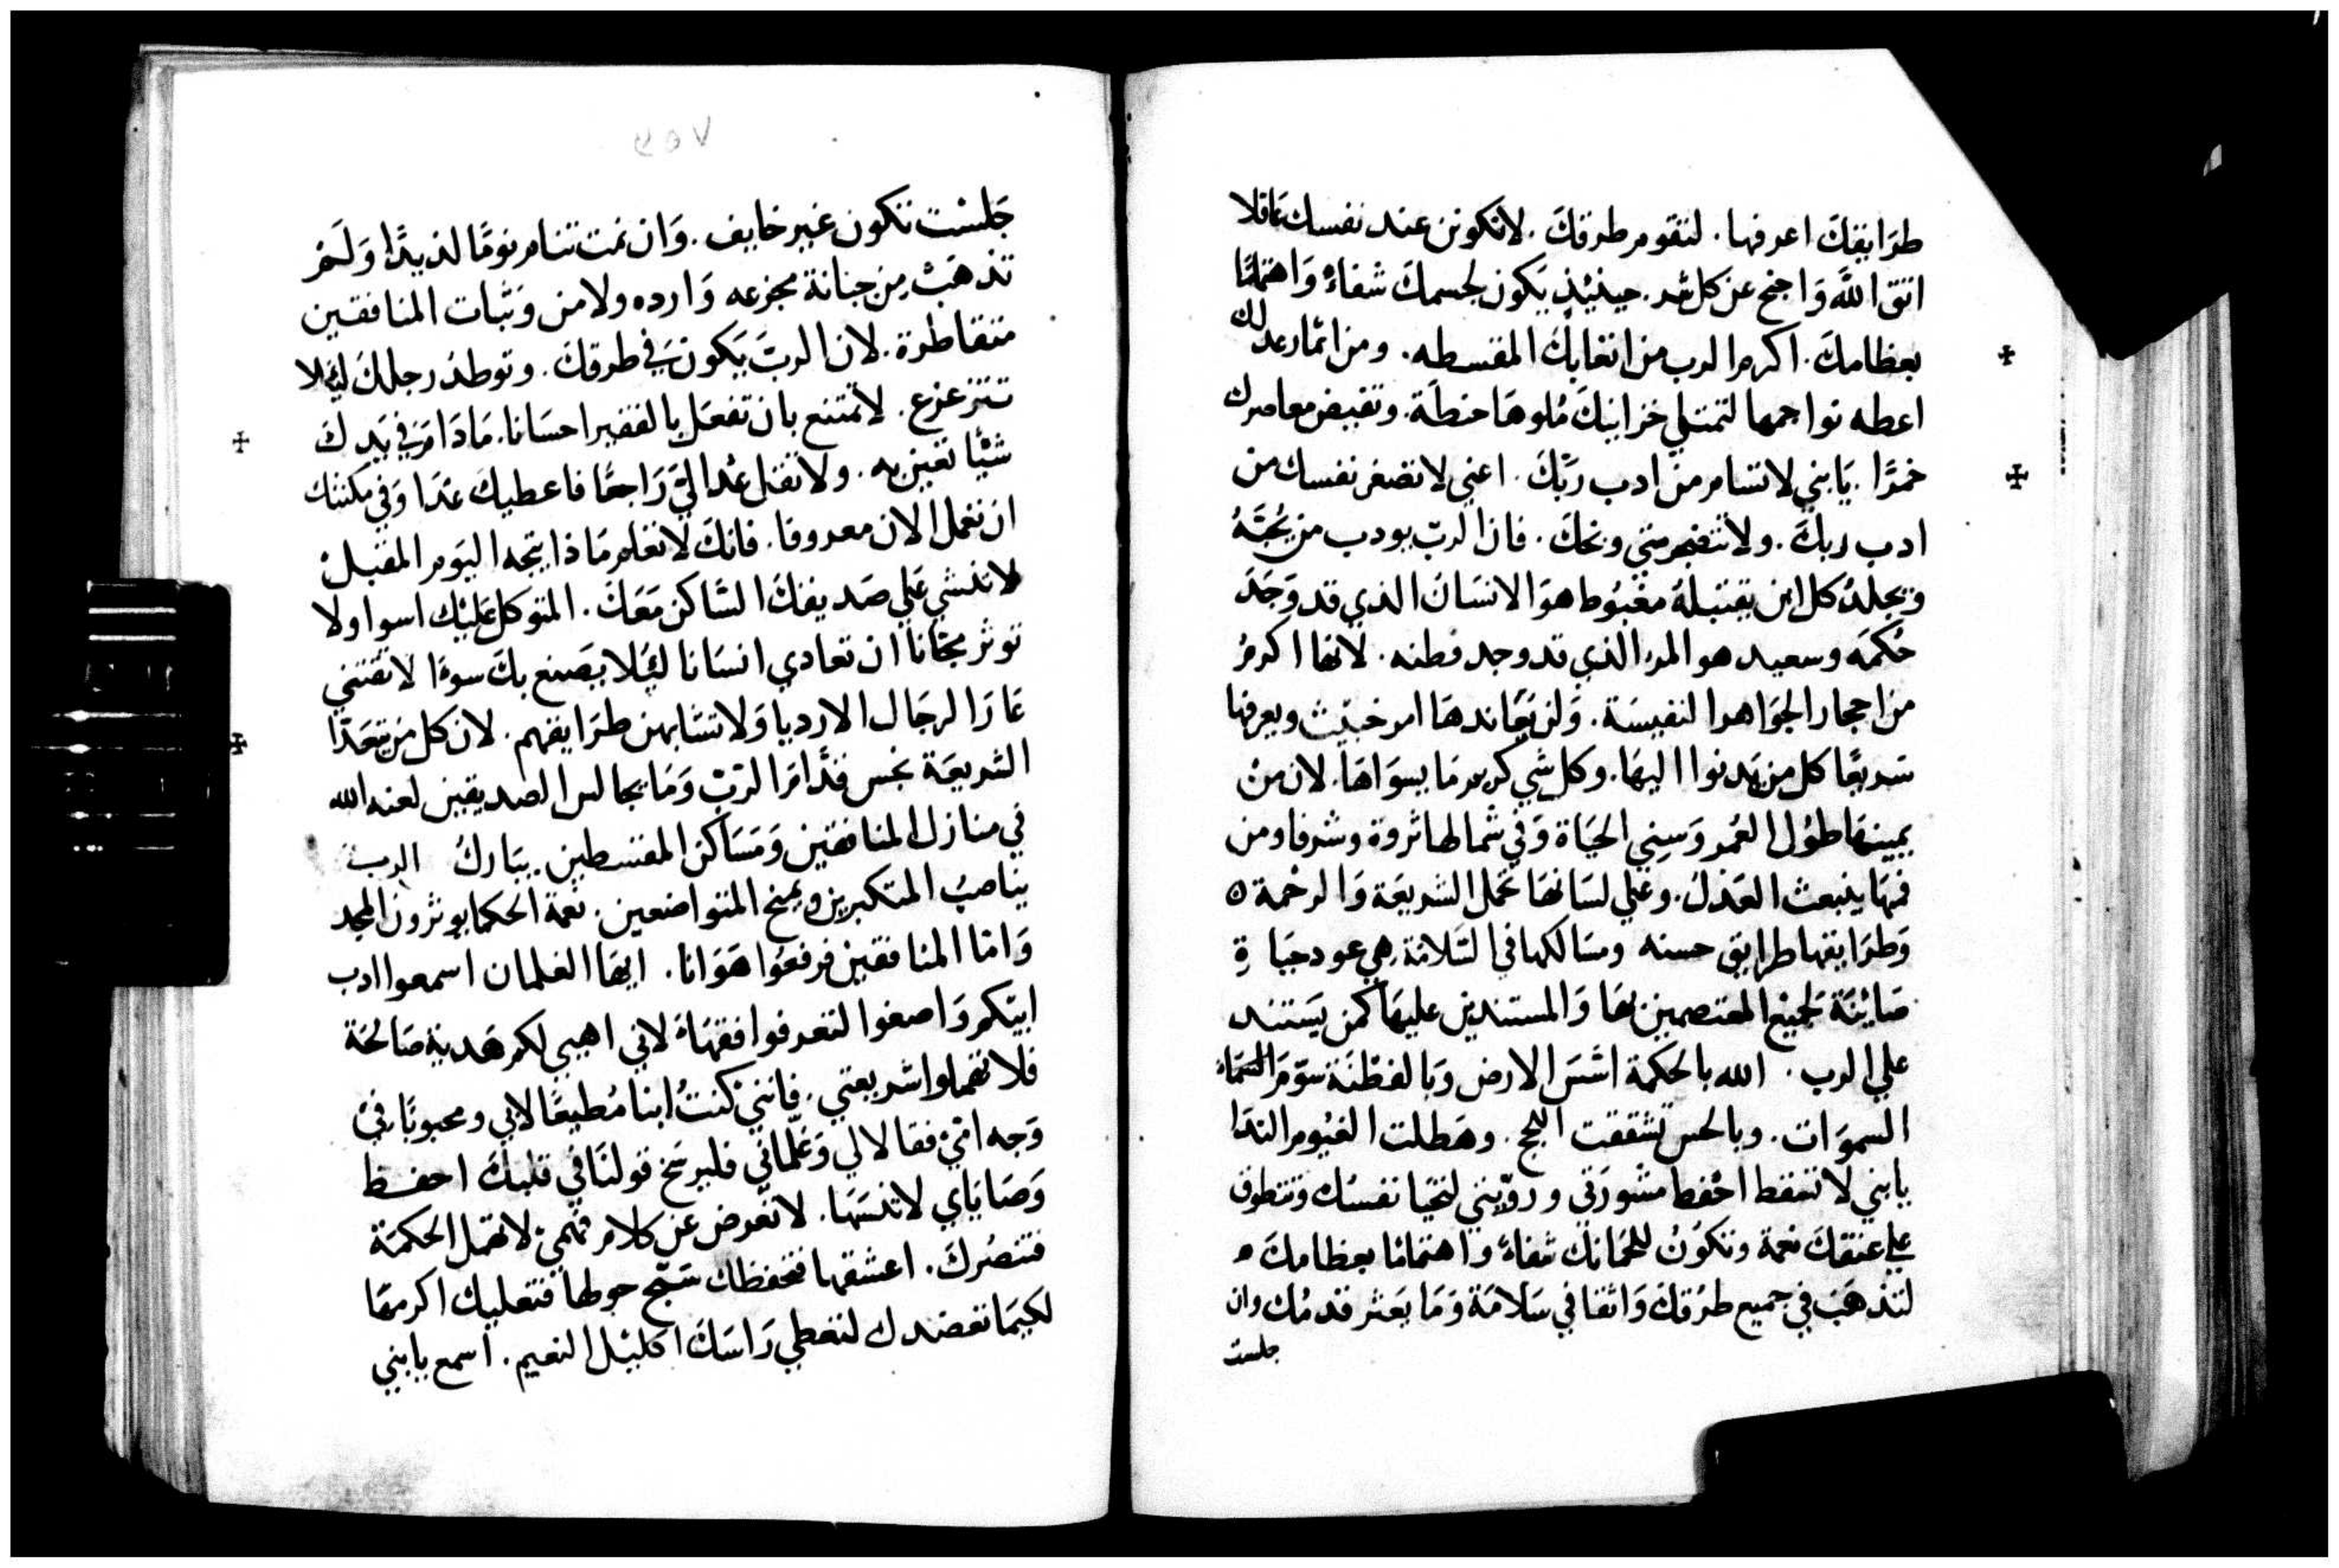 طرَايقِكَ اعرفها. لتقوم طرقكَ. لاتكونن عند نفسك عَاقلا
اتق اللهَ وَاجنح عن كل شر. حينيذٍ يَكون لجسمكَ شفاءً وَاهتمامًا
بعظامكَ. اكرم الرب من اتعابكَ المقسطه. ومن اثمار عدلك
اعطه نواجمها لتمتلي خزاينكَ مُلوهَا حنطَة. وتفيض معاصرك
خمرًا. يَابني لا تسام من ادب ربّكَ. اعني لاتصغر نفسك من
ادب ربكَ. ولا تنضجر متي وبخكَ. فان الربّ يودب من يُحبّهُ
ويجلدُ كل ابن يقتبلهُ مغبُوط هوَ الانسَان الذي قد وَجَدَ
حُكمَه وسعيد هو المرء الذي قد وجد فطنه. لانها اكرمُ
من احجار الجَوَاهر النفيسَة. وَلن يُعَاندهَا امر خبيث ويعرفها
سَريعًا كل من يَدنوا اليهَا. وكل شي كريم مَا يسوَاهَا. لان منْ
يمينهَا طوُل العُمر وَسِني الحيَاة وَفي شمالها ثروة وشرفا ومن
فمهَا ينبعث العَدلُ. وعَلي لسَانهَا تحمل الشريعَة وَالرحْمة ٥
وَطرَايقها طرايق حسنه ومسَالكها في السَلامَة هِي عود حيَاةٍ
صَاينَة لجميْع المعتصمين بهَا وَالمستندين عليهَا كمن يَستند
علي الرب. الله بالحكمة اسّسَ الارض وَبالفطْنَة سَوّمَ السَمَاء
السموَات. وبالحس تشققت اللجج. وهَطلت الغيُوم الندَا
يابني لا تسقط احْفط مشورَتي ورويّتي لتحْيَا نفسُك وتتطوق
علي عنقكَ نعمة وتكوُنُ للحمَانك شفاءً وَاهتمامًا بعظامكَ ٥
لتذهَبَ في جميع طرُقكَ وَاثقا في سَلامَة وَمَا يَعثر قدمُك وان
جلست
٢٥٧
جَلسْت تكون غير خايف. وَان نمت تنام نومًا لذيذًا وَلَمْ
تذهَبْ مِن جبانة مجزعه وَارده ولامن وَثبات المنافقين
متقاطرة. لان الربَّ يَكون في طرقكَ. وتوطدُ رجلكَ ليَلا
تتزعزع. لاتمتنع بان تفعَل بالفقير احسَانا. مَادَام في يَدكَ
شيْا تعين به. ولا تقل عُد اليَّ رَاجعًا فاعطيكَ غدًا وَفي مكنتك
ان تعمل الان معروفا. فانكَ لاتعلم مَاذا ينتجه اليَوم المقبلْ
لاتنشي عَلي صَديقكَ السَّاكن مَعَكَ. المتوكل عَليْك اسوا ولا
توثر مجَّانا ان تعادي انسَانا ليَلا يصَنع بكَ سوءًا لا تقتني
عَارَ الرجَال الارديا وَلاتشَابهن طرَايقهم. لان كل من يتعَدّا
الشريعَة نجس قدَّام الربّ وَمَا يجالس الصديقين لعنه الله
في منازل المنافقين وَمَسَاكن المقسطين يبَاركُ الرب
يناصبُ المتكبرين وَيمنح المتواضعين نعمة الحكما يوثرون المجد
وَامّا المنافقينْ فرفعُوا هَوَانا. ايهَا الغلمان اسمعوا ادب
ابيّكم وَاصغوا لتعرفوا فقهَاهُ لاني اهبي لكم هَدية صَالحَة
فلا تهملوا شريعتي. فانني كنتُ ابنا مُطيعًا لابي ومحبوبًا فيْ
وَجه امّيْ فقالا لي وَعَلّماني فليرسَخ قولنَا في قلبكَ احفظ
وَصَايَاي لاتنسَهَا. لا تعْرض عَن كلام فمي لا تهمل الحكمَة
فتنصُركَ. اعشقها فتحفظك سَيّج حولها فتعليك اكرمهَا
لكيمَا تعضدك لتعطي رَاسَكَ اكليْل النعيم. اسمع يابني